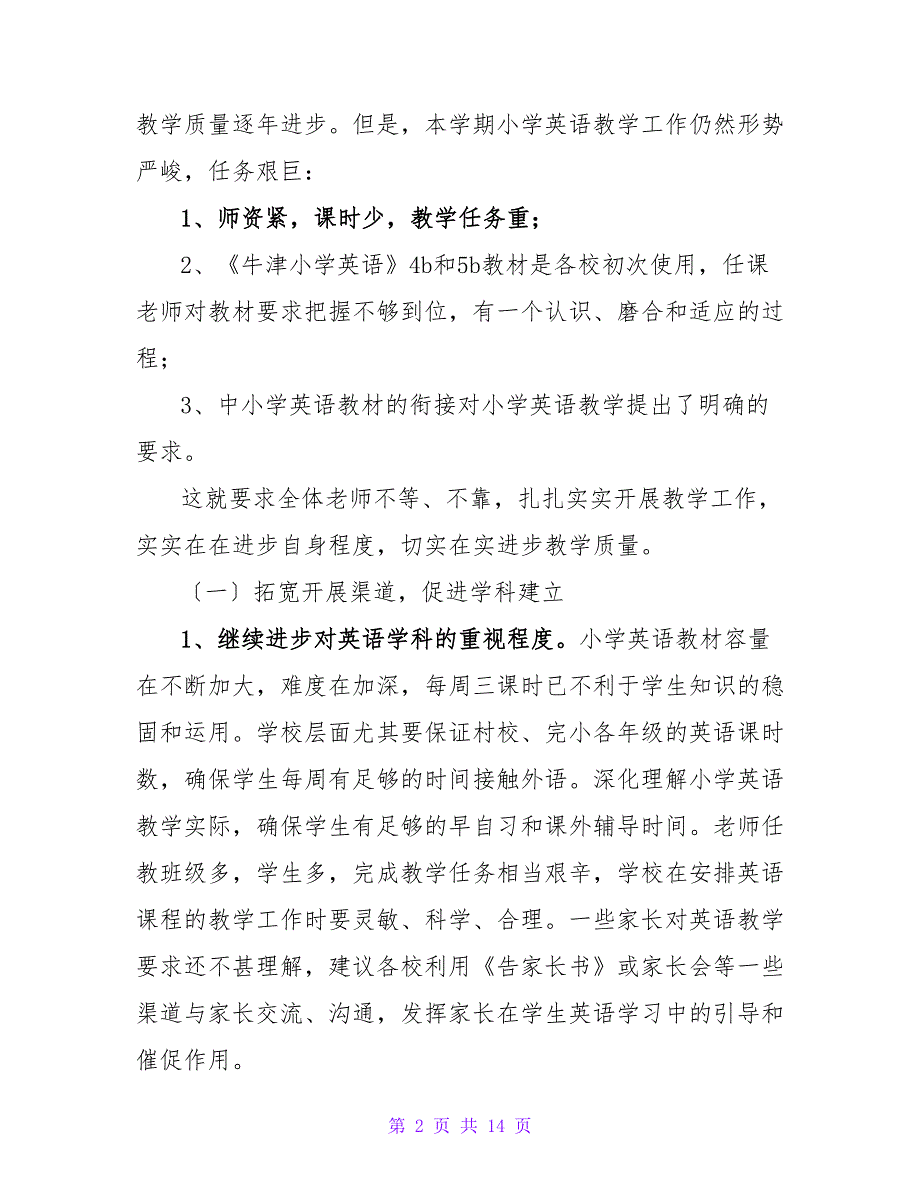 教学质量逐年进步。但是，本学期小学英语教学工作仍然形势
严峻，任务艰巨：
1、师资紧，课时少，教学任务重；
2、《牛津小学英语》4b和5b教材是各校初次使用，任课
老师对教材要求把握不够到位，有一个认识、磨合和适应的过
程；
3、中小学英语教材的衔接对小学英语教学提出了明确的
要求。
这就要求全体老师不等、不靠，扎扎实实开展教学工作，
实实在在进步自身程度，切实在实进步教学质量。
〔一〕拓宽开展渠道，促进学科建立
1、继续进步对英语学科的重视程度。小学英语教材容量
在不断加大，难度在加深，每周三课时已不利于学生知识的稳
固和运用。学校层面尤其要保证村校、完小各年级的英语课时
数，确保学生每周有足够的时间接触外语。深化理解小学英语
教学实际，确保学生有足够的早自习和课外辅导时间。老师任
教班级多，学生多，完成教学任务相当艰辛，学校在安排英语
课程的教学工作时要灵敏、科学、合理。一些家长对英语教学
要求还不甚理解，建议各校利用《告家长书》或家长会等一些
渠道与家长交流、沟通，发挥家长在学生英语学习中的引导和
催促作用。
第 2 页 共 14 页